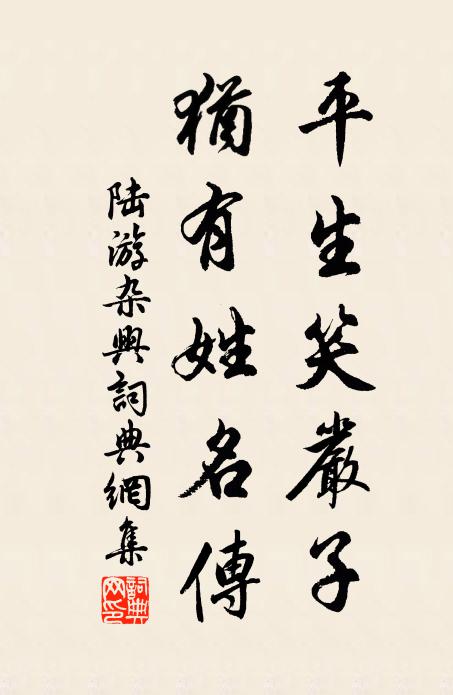 平生笑嚴子
猶有姓名傳
陸游杂興詞典網集
詞典